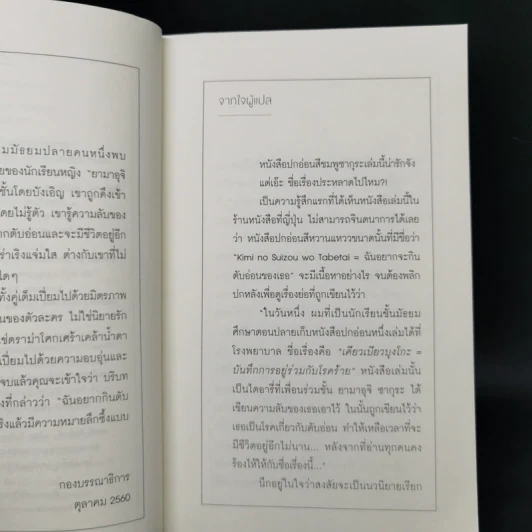 มมัธยมปลายคนหนึ่งพบ
ยของนักเรียนหญิง "ยามาอุจิ
ชั้นโดยบังเอิญ เขาถูกดึงเข้า
ดยไม่รู้ตัว เขารู้ความลับของ
กตับอ่อนและจะมีชีวิตอยู่อีก
ร่าเริงแจ่มใส ต่างกับเขาที่ไม่
ใดๆ
ทั้งคู่เต็มเปี่ยมไปด้วยมิตรภาพ
นของตัวละคร ไม่ใช่นิยายรัก
ช่ดราม่าโศกเศร้าเคล้าน้ำตา
เปี่ยมไปด้วยความอบอุ่นและ
จบแล้วคุณจะเข้าใจว่า บริบท
งที่กล่าวว่า "ฉันอยากกินตับ
ริงแล้วมีความหมายลึกซึ้งแบบ
กองบรรณาธิการ
ตุลาคม 2560
จากใจผู้แปล
หนังสือปกอ่อนสีชมพูซากุระเล่มนี้น่ารักจัง
แต่เอ๊ะ ชื่อเรื่องประหลาดไปไหม?!
เป็นความรู้สึกแรกที่ได้เห็นหนังสือเล่มนี้ใน
ร้านหนังสือที่ญี่ปุ่น ไม่สามารถจินตนาการได้เลย
ว่า หนังสือปกอ่อนสีหวานแหววขนาดนั้นที่มีชื่อว่า
"Kimi no Suizou wo Tabetai = ฉันอยากจะกิน
ตับอ่อนของเธอ" จะมีเนื้อหาอย่างไร จนต้องพลิก
ปกหลังเพื่อดูเรื่องย่อที่ถูกเขียนไว้ว่า
"ในวันหนึ่ง ผมที่เป็นนักเรียนชั้นมัธยม
ศึกษาตอนปลายเก็บหนังสือปกอ่อนหนึ่งเล่มได้ที่
โรงพยาบาล ชื่อเรื่องคือ "เคียวเบียวบุงโกะ =
บันทึกการอยู่ร่วมกับโรคร้าย" หนังสือเล่มนั้น
เป็นไดอารี่ที่เพื่อนร่วมชั้น ยามาอุจิ ซากุระ ได้
เขียนความลับของเธอเอาไว้ ในนั้นถูกเขียนไว้ว่า
เธอเป็นโรคเกี่ยวกับตับอ่อน ทำให้เหลือเวลาที่จะ
มีชีวิตอยู่อีกไม่นาน... หลังจากที่อ่านทุกคนคง
ร้องไห้ให้กับชื่อเรื่องนี้..."
นึกอยู่ในใจว่าสงสัยจะเป็นนวนิยายเรียก